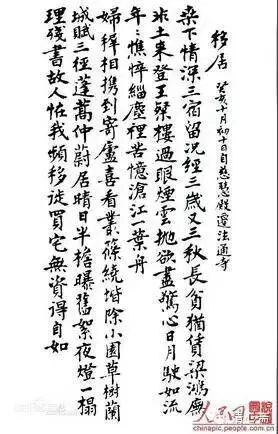 移居 癸亥十月初十日自慈慧殿遷法通寺
桑下情深三宿留況經三歲又三秋長貧猶賃梁鴻廡
非土来登王粲樓過眼煙雲抛欲盡驚心日月駛如流
年〻憔悴緇塵裡苦憶滄江一葉舟
婦稚相攜到寄廬喜看叢篠繞階除小園草樹蘭
城賦三徑蓬蒿仲蔚居晴日半檐曝舊絮夜燈一榻
理殘書故人怪我頻移徙買宅無資得自如
人民网
chinapic.people.com.cn